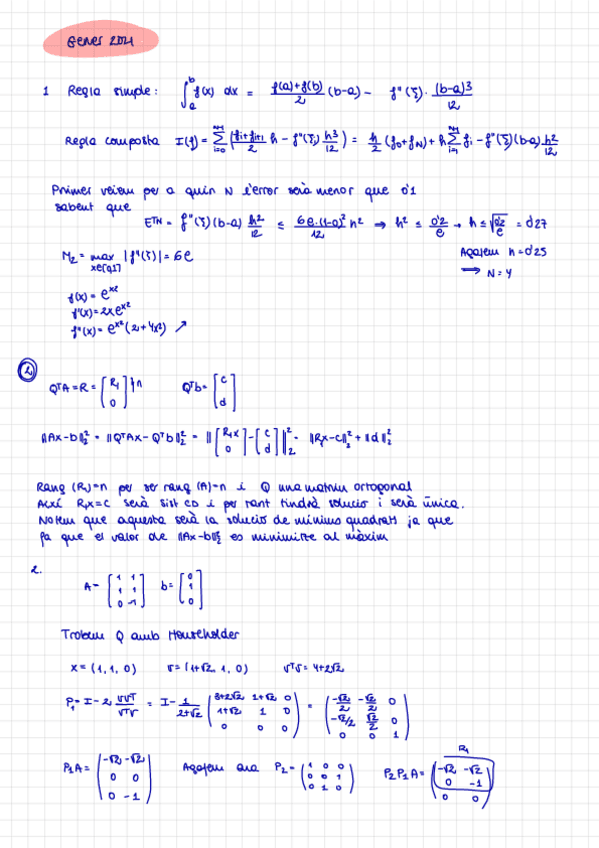 Gener 2021
1 Regla simple: ∫_a^b f(x) dx = (f(a)+f(b))/2 (b-a) - f''(ξ)·(b-a)3/12
Regla composta I(f) = Σ_{i=0}^{N-1} (fi+fi+1/2 h - f''(ξi) h3/12) = h/2 (f0+fN) + hΣ_{i=1}^{N-1} fi - f''(ξ)(b-a) h2/12
Primer veiem per a quin N l'error serà menor que 0'1
sabent que
ETN = f''(ξ)(b-a) h2/12 ≤ 6e·(1-0)2/12 h2 ⇒ h2 ≤ 0'2/e → h ≤ √(0'2/e) = 0'27
M2 = max x∈[0,1] |f''(ξ)| = 6e
Agafem h=0'25
⟹ N=4
f(x) = e^x2
f'(x) = 2x e^x2
f''(x) = e^x2 (2+4x2) ↗
2
QTA = R = [R1 0] }n QTb = [c d]
||Ax-b||2 2 = ||QTAx - QTb||2 2 = ||[R1x 0] - [c d]||2 2 = ||R1x-c||2 2 + ||d||2 2
Rang (R1)=n per ser rang (A)=n i Q una matriu ortogonal
Així R1x=c serà sist CD i per tant tindrà solució i serà única.
Notem que aquesta serà la solució de mínims quadrats ja que
fa que el valor de ||Ax-b||2 2 es minimitze al màxim
2.
A = [1 1; 1 1; 0 -1] b = [0; 1; 0]
Trobem Q amb Householder
x = (1,1,0) v = (1+√2, 1, 0) vTv = 4+2√2
P1 = I - 2 vvT/vTv = I - 1/(2+√2) (3+2√2 1+√2 0; 1+√2 1 0; 0 0 0) = (-√2/2 -√2/2 0; -√2/2 √2/2 0; 0 0 1)
R1
P1A = (-√2 -√2; 0 0; 0 -1) Agafem ara P2 = (1 0 0; 0 0 1; 0 1 0) P2P1A = (-√2 -√2; 0 -1; 0 0)